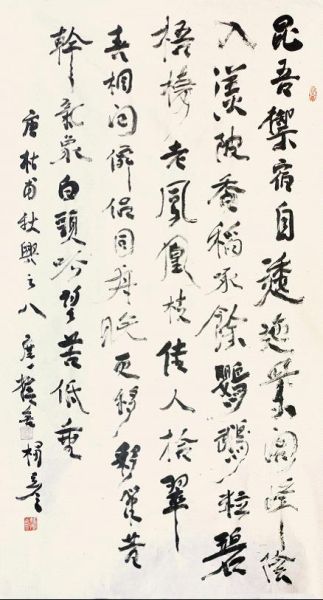 昆吾禦宿自逶迤紫閣峰陰
入渼陂香稻啄餘鸚鵡粒碧
梧棲老鳳凰枝佳人拾翠
春相問僊侶同舟晚更移彩筆昔
幹氣象白頭吟望苦低垂
唐杜甫秋興之八